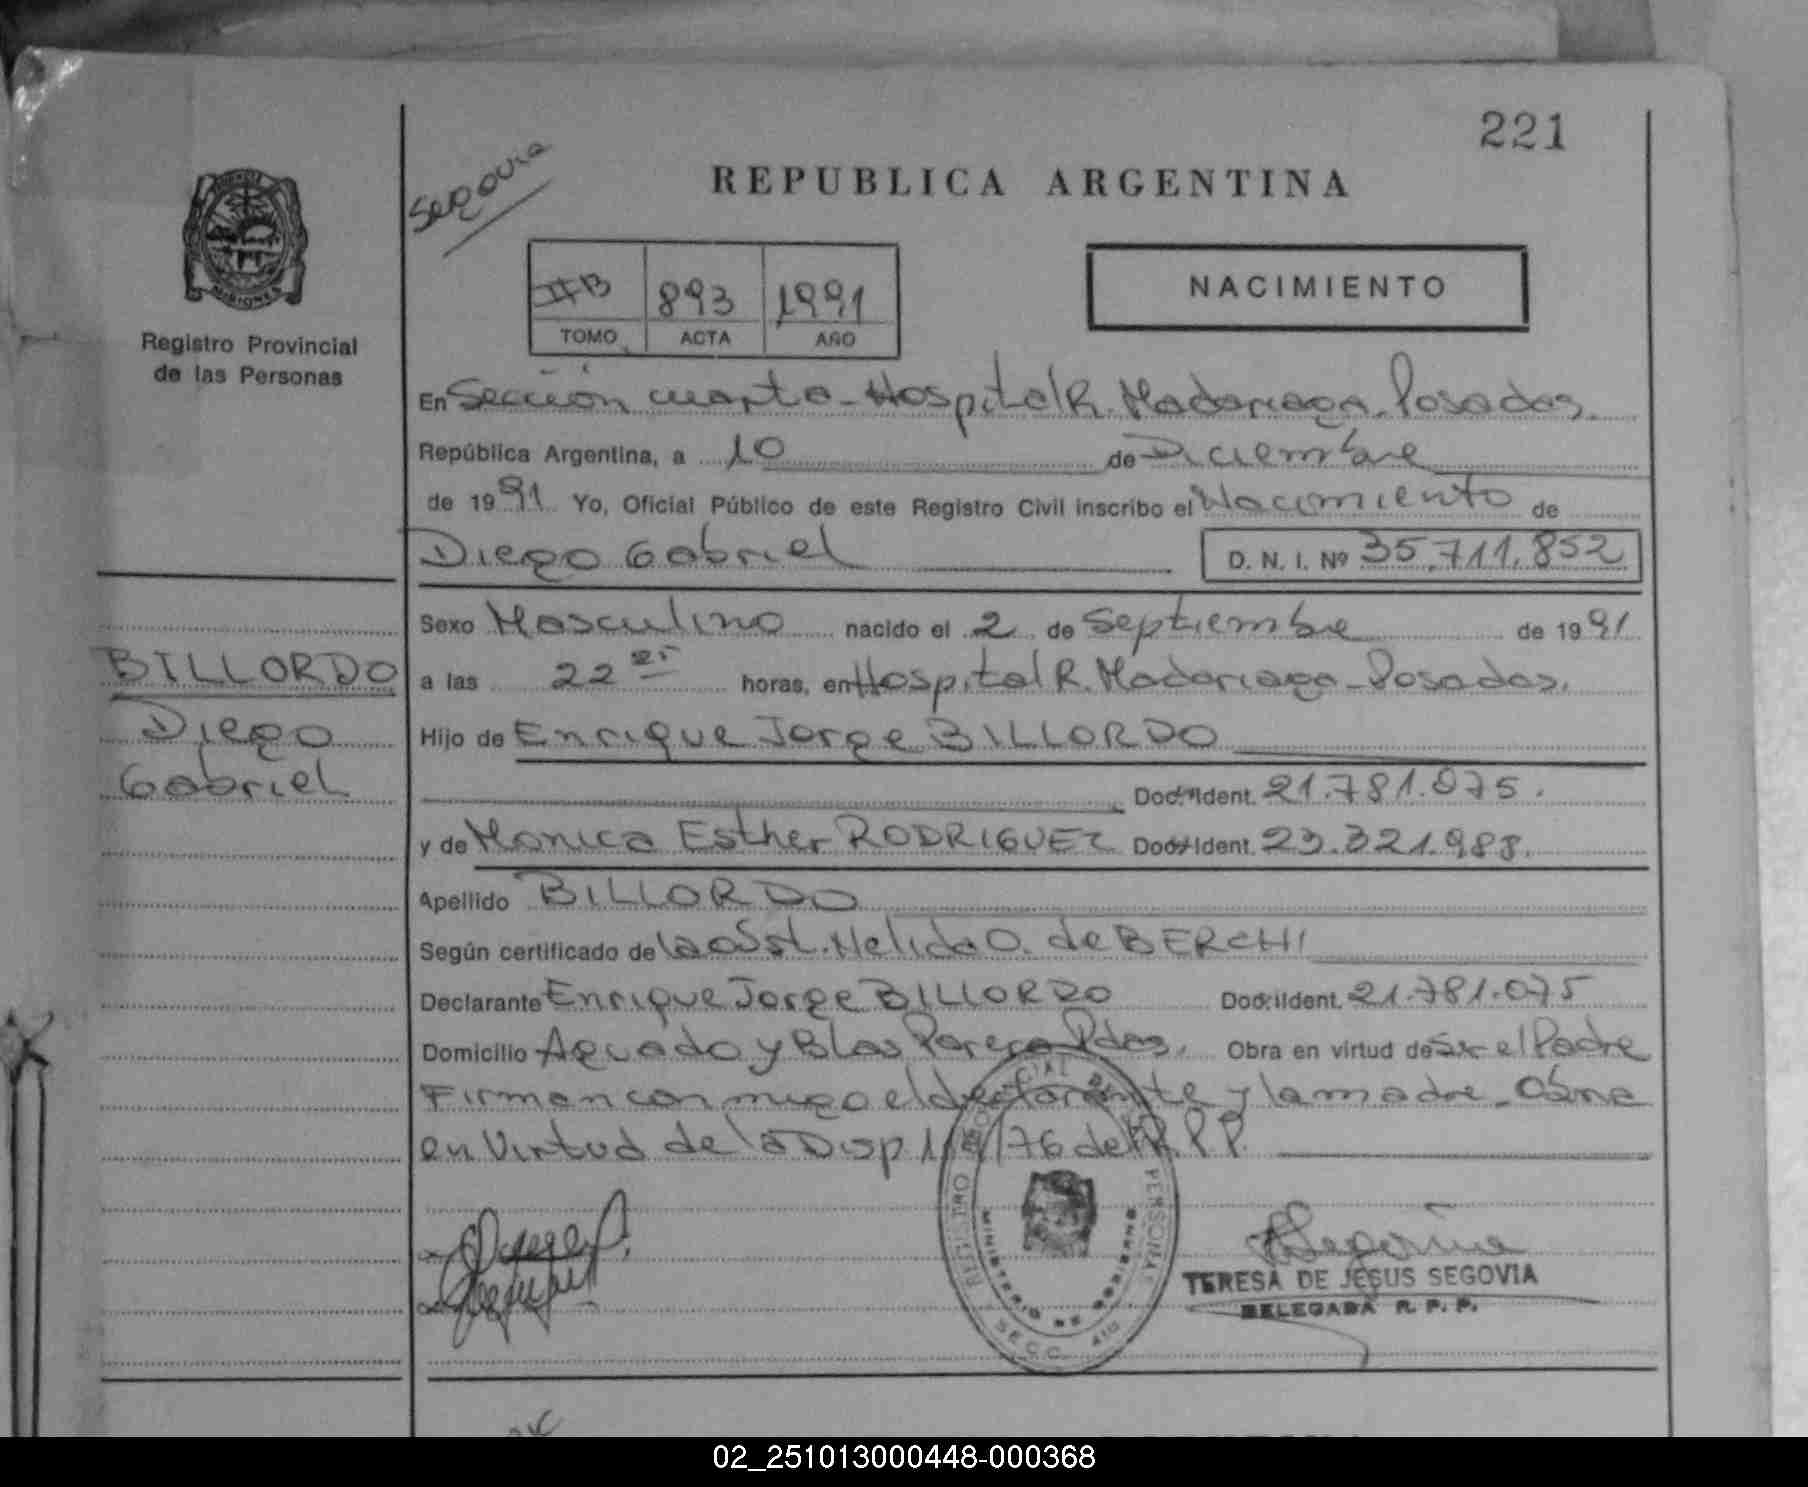 221
Segovia
REPUBLICA ARGENTINA
MISIONES
Registro Provincial
de las Personas
IIB 893 1991
TOMO ACTA AÑO
NACIMIENTO
En Sección cuarta - Hospital R. Madariaga. Posadas.
República Argentina, a 10 de Diciembre
de 1991. Yo, Oficial Público de este Registro Civil inscribo el Nacimiento de
Diego Gabriel D. N. I. Nº 35.711.852
Sexo Masculino nacido el 2 de Septiembre de 1991
BILLORDO
Diego
Gabriel
a las 22 horas, en Hospital R. Madariaga - Posadas.
Hijo de Enrique Jorge BILLORDO
Doc. Ident. 21.781.075.
y de Monica Esther RODRIGUEZ Doc. Ident. 23.321.988.
Apellido BILLORDO
Según certificado de la Obst. Nelida O. de BERCHI
Declarante Enrique Jorge BILLORDO Doc. Ident. 21.781.075
Domicilio Aguado y Blas Parera Pdas. Obra en virtud de Ser el Padre
Firman con migo el declarante y la madre - Obra
en Virtud de la Disp 114/76 del R.P.P.
REGISTRO PROVINCIAL DE PERSONAS
MINISTERIO DE GOBIERNO
SECC. 4
TERESA DE JESUS SEGOVIA
DELEGADA R. P. P.
02_251013000448-000368